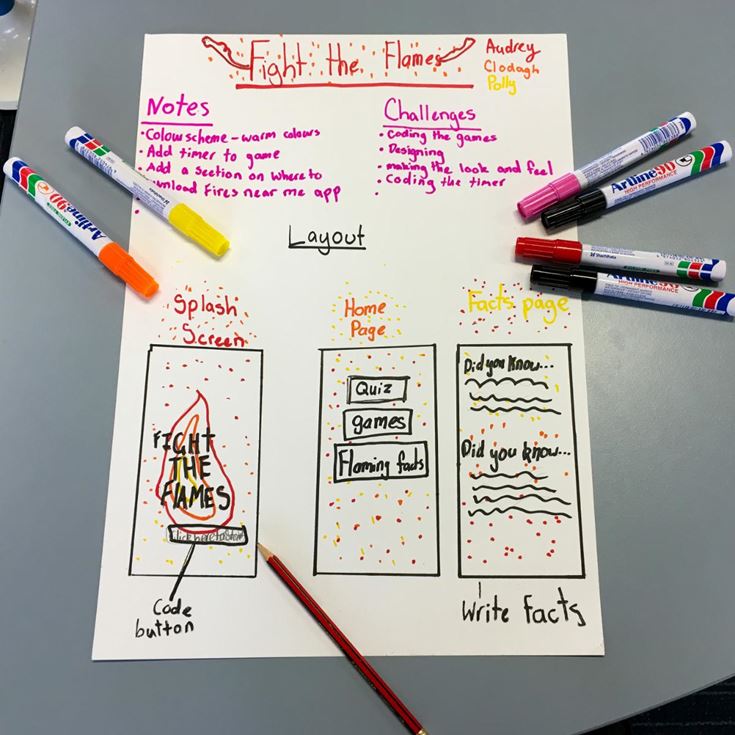 Fight the Flames
Audrey
Clodagh
Polly
Notes
• Colour scheme - warm colours
• Add timer to game
• Add a section on where to
wnload Fires near me app
Challenges
• Coding the games
• Designing
• making the look and feel
• Coding the timer
Layout
Splash
Screen
FIGHT
THE
FLAMES
Click here to
Code
button
Home
Page
Quiz
games
Flaming facts
Facts page
Did you know...
Did you know...
Write facts
Artline 90
Artline 90
HIGH PERFORMANCE
Shachihata
Artline 90
HIGH PERFORMANCE